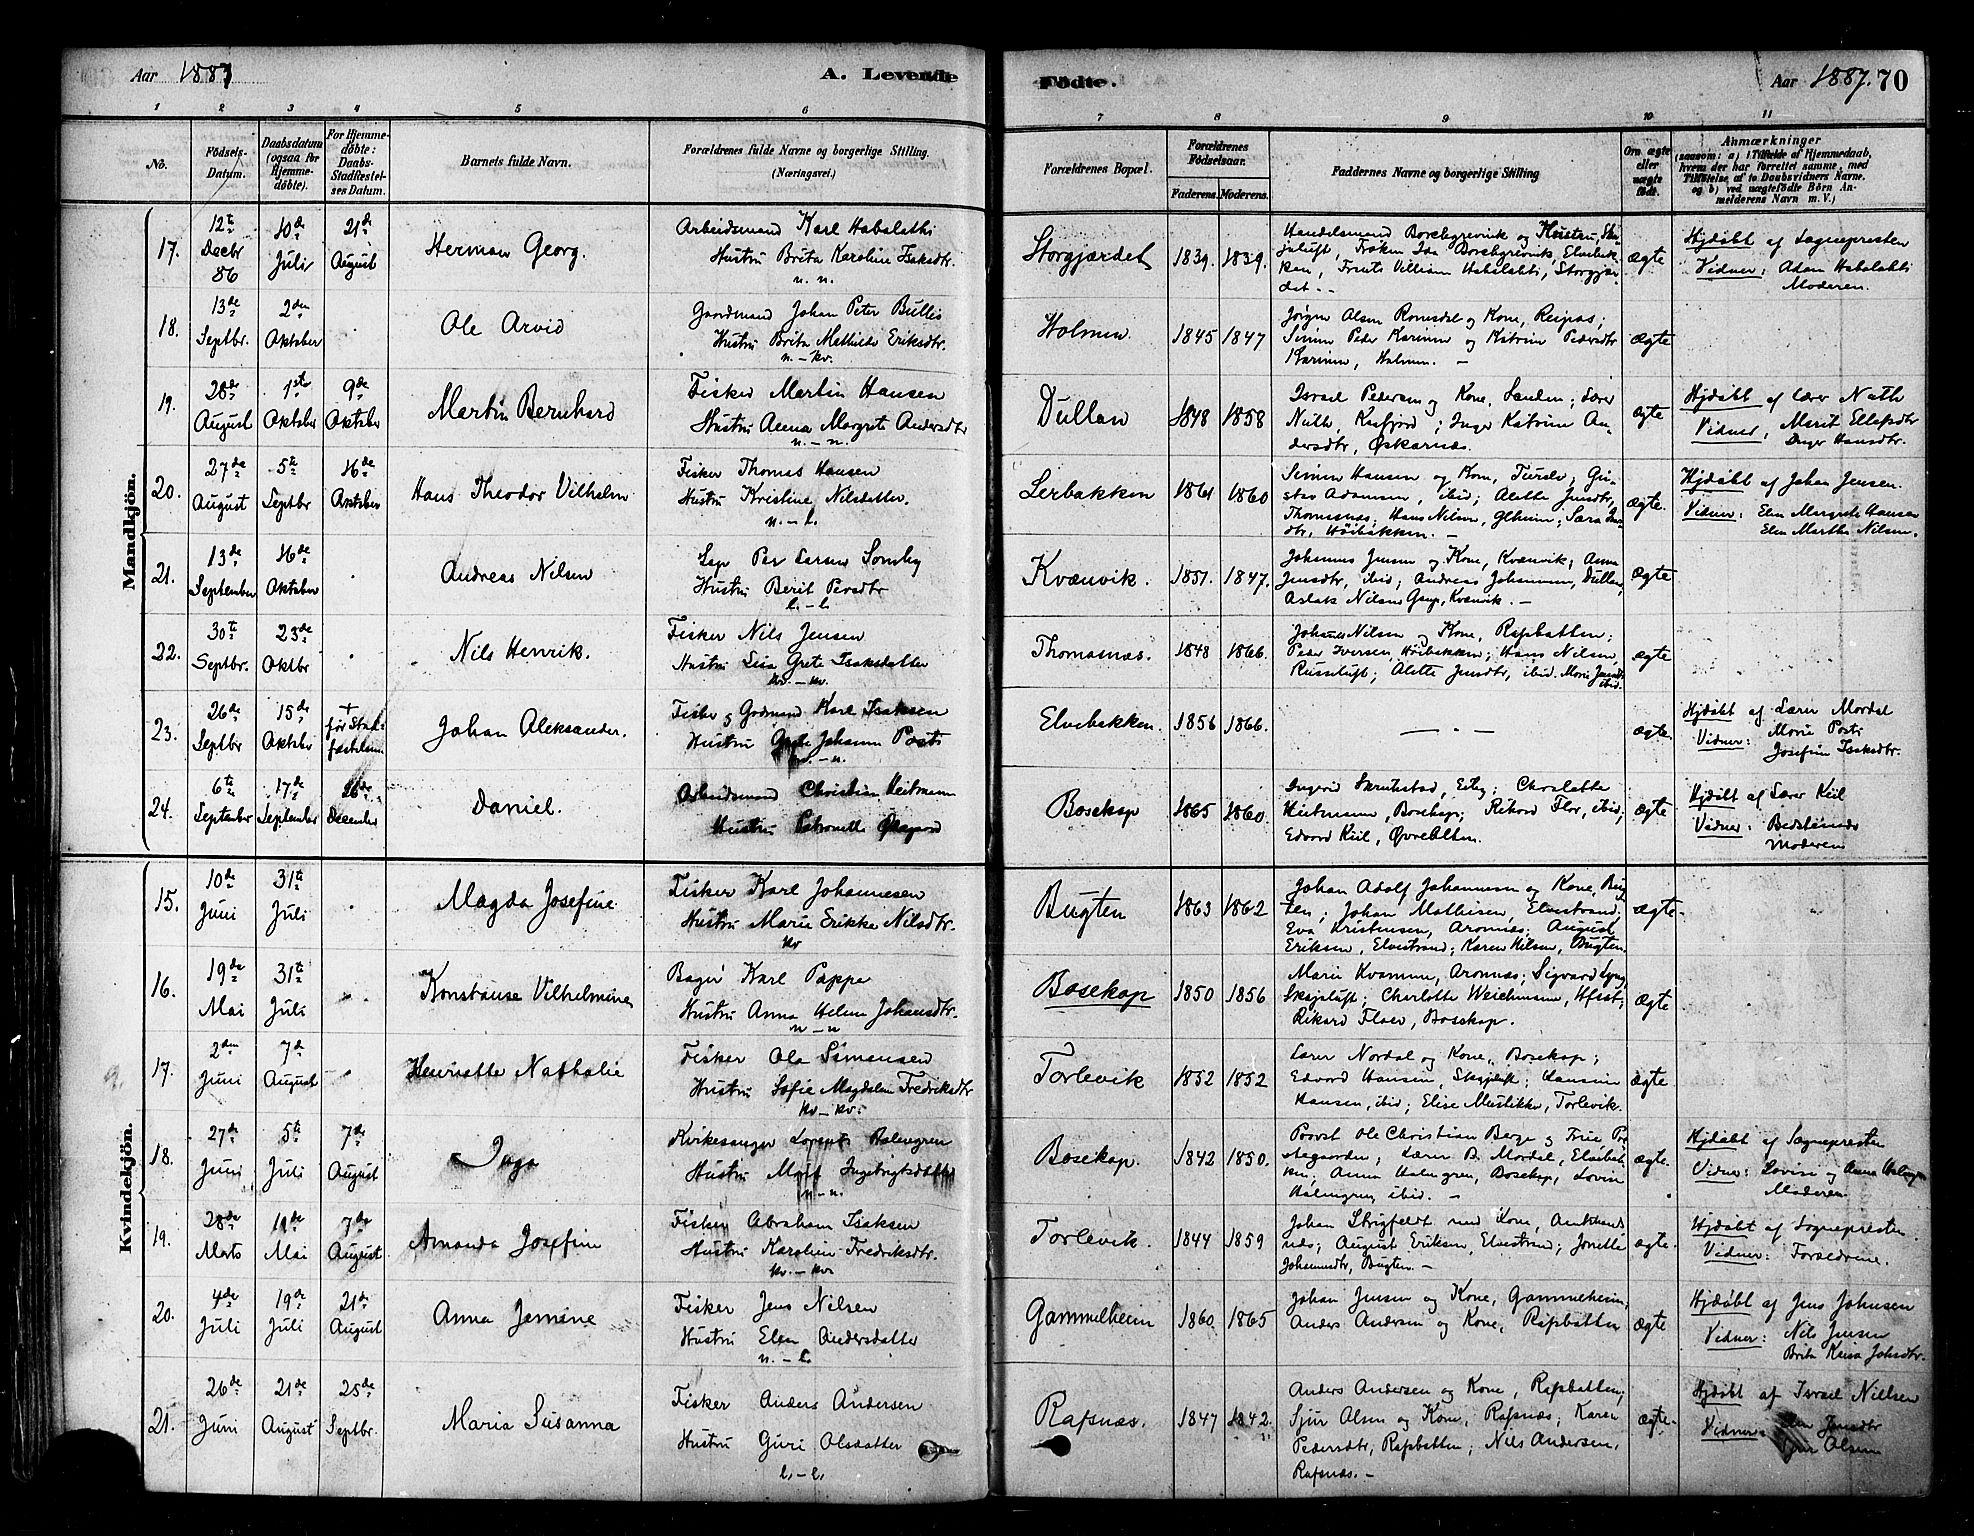 Aar 1887
A. Levende
Fødte.
Aar 1887. 70
1 2 3 4 5 6 7 8 9 10 11
No.
Fødsels-
Datum.
Daabsdatum
(ogsaa for
Hjemme-
døbte).
For Hjemme-
døbte:
Daabs-
Stadfæstel-
ses Datum.
Barnets fulde Navn.
Forældrenes fulde Navne og borgerlige Stilling.
(Næringsvei.)
Forældrenes Bopæl.
Forældrenes
Fødselsaar.
Faderens. Moderens.
Faddernes Navne og borgerlige Stilling
Om ægte
eller
uægte
født.
Anmærkninger
(saasom: a) i Tilfælde af Hjemmedaab,
hvem der har forrettet samme, med
Tilføielse af to Daabsvidners Navne.
og b) ved uægtefødte Børn An-
melderens Navn m. V.)
Mandkjön.
17.
12te
Decbr
86
10de
Juli
21de
August
Herman Georg.
Arbeidsmand Karl Habalathi
Hustru Brita Karoline Isaksdtr.
n. n.
Storgjærdet
1839. 1839.
Handelsmand Borchgrevink og Hustru,
Frøken Ida Borchgrevink,
Habalahti, Storgjær-
det. -
Ægte
Hjdøbt af Sognepresten
Vidner: Adam Habalahti
Moderen.
18.
13de
Septbr.
2den
Oktober
Ole Arvid
Gaardmand Johan Peter Bullis
Hustru Brita Mathilde Eriksdtr.
n. - kv.
Holmen.
1845 1847
Jørgen Olsen Romsdal og Kone, Reipas;
Simon Peder Karinen og Katrine Pedersdtr
Karinen, Holmen. -
Ægte
19.
20de
August
1ste
Oktober
9de
Oktober
Martin Bernhard
Fisker Martin Hansen
Hustru Anna Margrete Andersdtr
n. - n.
Dullan
1848 1858
Israel Pedersen og Kone, Sanden; Lærer
Nuth, Kaafjord; Inger Katrine An-
dersdtr, Øskarnæs.
ægte
Hjdøbt af Lærer Nuth
Vidner, Marit Ellefsdtr
Inger Hansdtr.
20.
27de
August
5te
Septbr
16de
Oktober
Hans Theodor Vilhelm
Fisker Thomas Hansen
Hustru Kristine Nilsdatter.
n. - l.
Lerbakken
1861 1860
Simon Hansen og Kone,
Adamsen, ibid; Alette Jensdtr,
Thomasnæs; Hans Nilsen,
Høibakken. -
Ægte.
Hjdøbt af Johan Jensen.
Vidner: Elen Margrete Hansen
Elen Marthe Nilsen.
21.
13de
September
16de
Oktober
Andreas Nilsen
Lap Per Larsen Somby
Hustru Berit Persdtr
l. - l.
Kvænvik.
1851. 1847.
Johannes Jensen og Kone, Kvænvik; Anna
Jensdtr, ibid; Andreas Johannesen, Dullan,
Aslak Nilsen Gaup, Kvænvik. -
Ægte
22.
30te
Septbr.
23de
Oktbr
Nils Henrik.
Fisker Nils Jensen
Hustru Lisa Grete Isaksdatter
kv. - kv.
Thomasnæs.
1848 1866.
Johan Nilsen og Kone, Rafsbotten;
Peder Iversen, Høibakken; Hans Nilsen,
Russeluft; Alette Jensdtr, ibid. Marie Jensdtr
ibid.
ægte
23.
26de
Septbr
15de
Oktober
+
før Stad-
fæstelsen
Johan Aleksander.
Fisker og Gdmand Karl Isaksen
Hustru Grete Johanne Posti
kv. - n.
Elvebakken.
1856 1866.
- . -
ægte.
Hjdøbt af Lærer Mordal
Vidner: Marie Posti
Josefine Isaksdtr.
24.
6te
September
17de
September
26de
December
Daniel.
Arbeidsmand Christian Heitmann
Hustru Petronelle
Bosekop
1865 1860.
Ingrid Charlotte
Heitmann, Bosekop; Rikard Floer, ibid;
Edvard Keil, Øvrealten.
ægte
Hjdøbt af Lærer Keil
Vidner: Bedstemoder
Moderen
Kvindekjön.
15.
10de
Juni
31te
Juli
Magda Josefine
Fisker Karl Johannesen
Hustru Marie Erikke Nilsdtr.
kv
Bugten
1863 1862
Johan Adolf Johannesen og Kone, Bug
ten; Johan Mathisen, Elvestrand;
Eva Kristensen, Aronnæs; August
Eriksen, Elvestrand; Karen Nilsen, Bugten
ægte.
16.
19de
Mai
31te
Juli
Konstanse Vilhelmine
Bager Karl Pappe
Hustru Anna Helene Johansdtr.
n - n
Bosekop
1850 1856
Marie Kvamme, Aronnæs; Sigvard Lyng
Skajaluft; Charlotte
Rikard Floer, Bosekop.
Ægte
17.
2den
Juni
7de
August
Henriette Nathalie
Fisker Ole Simonsen
Hustru Sofie Magdalene Fredriksdtr
kv - kv.
Torlevik
1852 1852
Lærer Nordal og Kone, Bosekop;
Edvard Hansen, Skajaluft; Hansine
Hansen, ibid; Elise Mustikka, Torlevik.
Ægte
18.
27de
Juni
5te
Juli
7de
August
Inga
Kirkesanger Lorents Holmgren
Hustru Marit Ingebrigtsdatter
n - n.
Bosekop.
1842 1850.
Provst Ole Christian Berge og Frue Præ
stegaarden; Lærer B. Mordal, Elvebak-
ken; Anna Holmgren, Bosekop, Lovise
Holmgren, ibid. -
ægte.
Hjdøbt af Sognepresten
Vidner: Lovise og Anna Holmgren
Moderen
19.
28de
Marts
19de
Mai
7de
August
Amanda Josefine
Fisker Abraham Isaksen
Hustru Karoline Fredriksdtr.
kv. - kv.
Torlevik.
1844 1859
Johan Strifeldt med Kone, Amtmands
næs; August Eriksen, Elvestrand; Jonette
Johannesdtr, Bugten. -
ægte.
Hjdøbt af Sognepresten
Vidner: Forældrene.
20.
4de
Juli
19de
Juli
21de
August
Anna Jemine
Fisker Jens Nilsen
Hustru Elen Andersdatter
n. - l.
Gammelheim
1860 1865
Johan Jensen og Kone, Gammelheim,
Anders Andersen og Kone, Rafsbotten
ægte
Hjdøbt af Jens Johnsen
Vidner: Nils Jensen
Brita Kaisa Johsdtr.
21.
26de
Juni
21de
August
25de
Septbr.
Maria Susanna
Fisker Anders Andersen
Hustru Guri Olsdatter
l. - l.
Rafsnæs.
1847 1842.
Anders Andersen og Kone, Rafsbotten,
Sjur Olsen og Kone, Rafsnæs; Karen
Pedersdtr, Rafsbotten; Nils Andersen,
Rafsnæs. -
ægte.
Hjdøbt af Israel Nilsen
Vidner: Jensdtr
Olsen